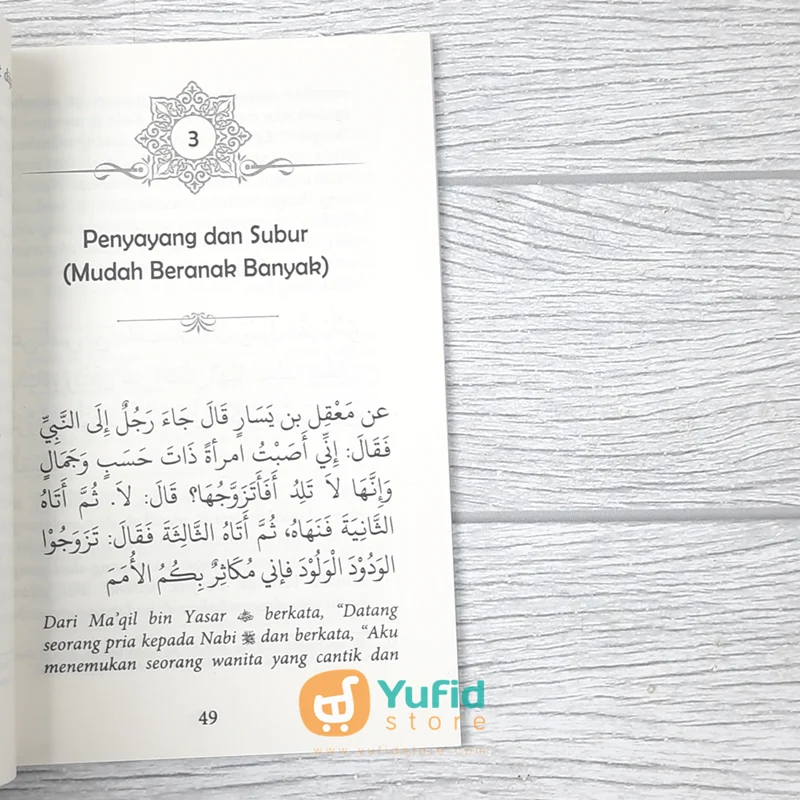 3
Penyayang dan Subur
(Mudah Beranak Banyak)
عن مَعْقِل بن يَسَارٍ قَالَ جَاءَ رَجُلٌ إِلَى النَّبِيِّ
فَقَالَ: إِنِّي أَصَبْتُ امرأةً ذَاتَ حَسَبٍ وَجَمَالٍ
وَإِنَّهَا لاَ تَلِدُ أَفَأَتَزَوَّجُهَا؟ قَالَ: لاَ. ثُمَّ أَتَاهُ
الثَّانِيَةَ فَنَهَاهُ، ثُمَّ أَتَاهُ الثَّالِثَةَ فَقَالَ: تَزَوَجُوْا
الوَدُوْدَ الْوَلُوْدَ فإني مُكَاثِرٌ بِكُمُ الأُمَمَ
Dari Ma'qil bin Yasar berkata, “Datang
seorang pria kepada Nabi ﷺ dan berkata, “Aku
menemukan seorang wanita yang cantik dan
49
Yufid
store
www.yufidstore.com